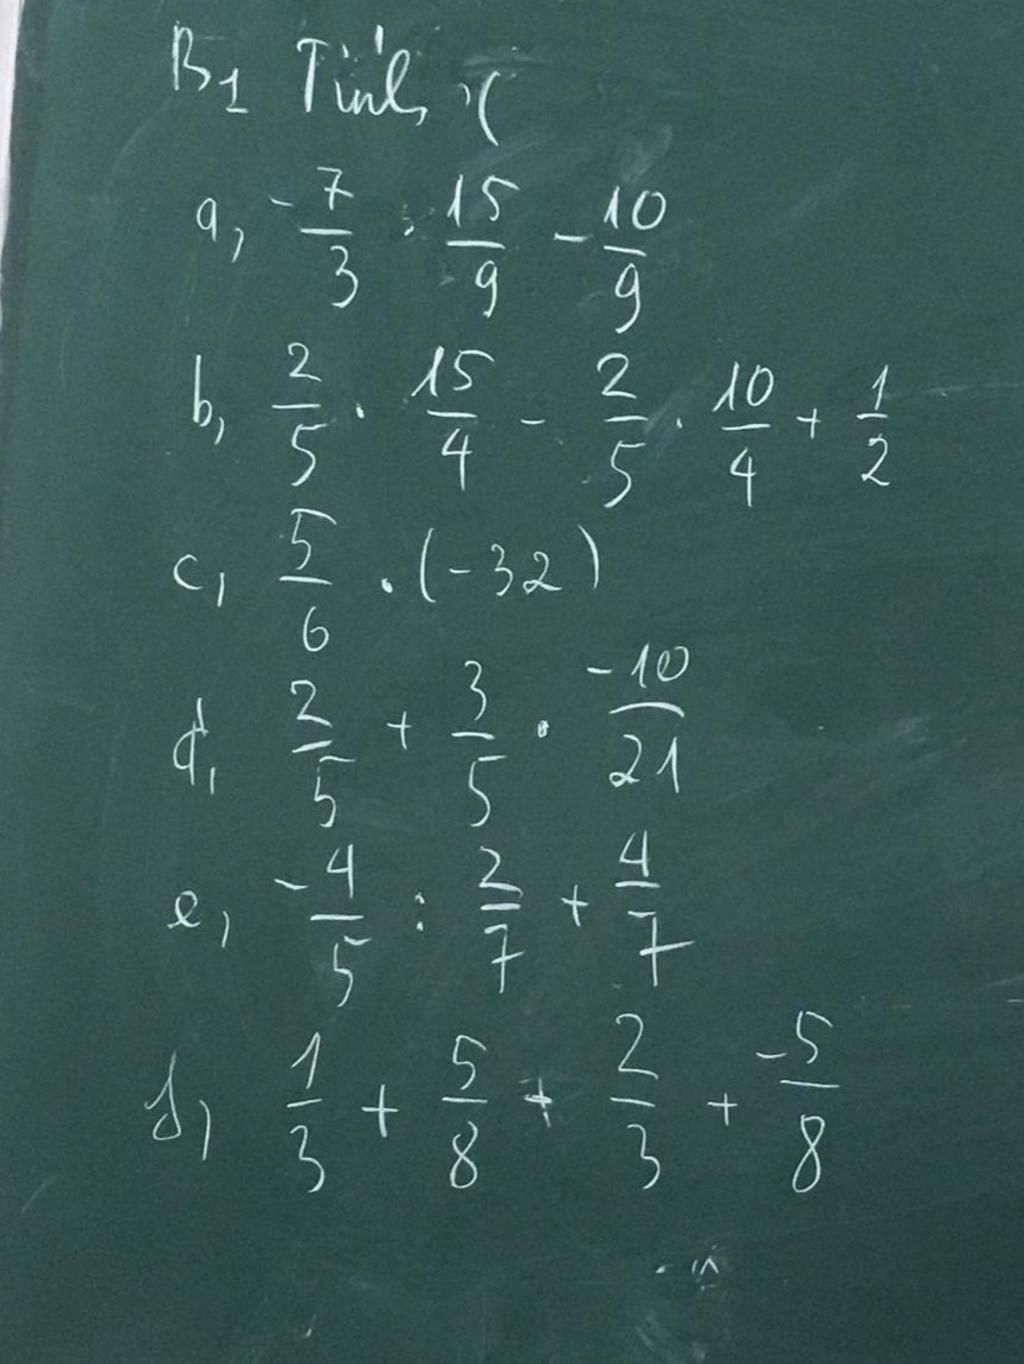 B1 Tính
a, -7/3 . 15/9 - 10/9
b, 2/5 . 15/4 - 2/5 . 10/4 + 1/2
c, 5/6 . (-32)
d, 2/5 + 3/5 . -10/21
e, -4/5 : 2/7 + 4/7
f, 1/3 + 5/8 + 2/3 + -5/8